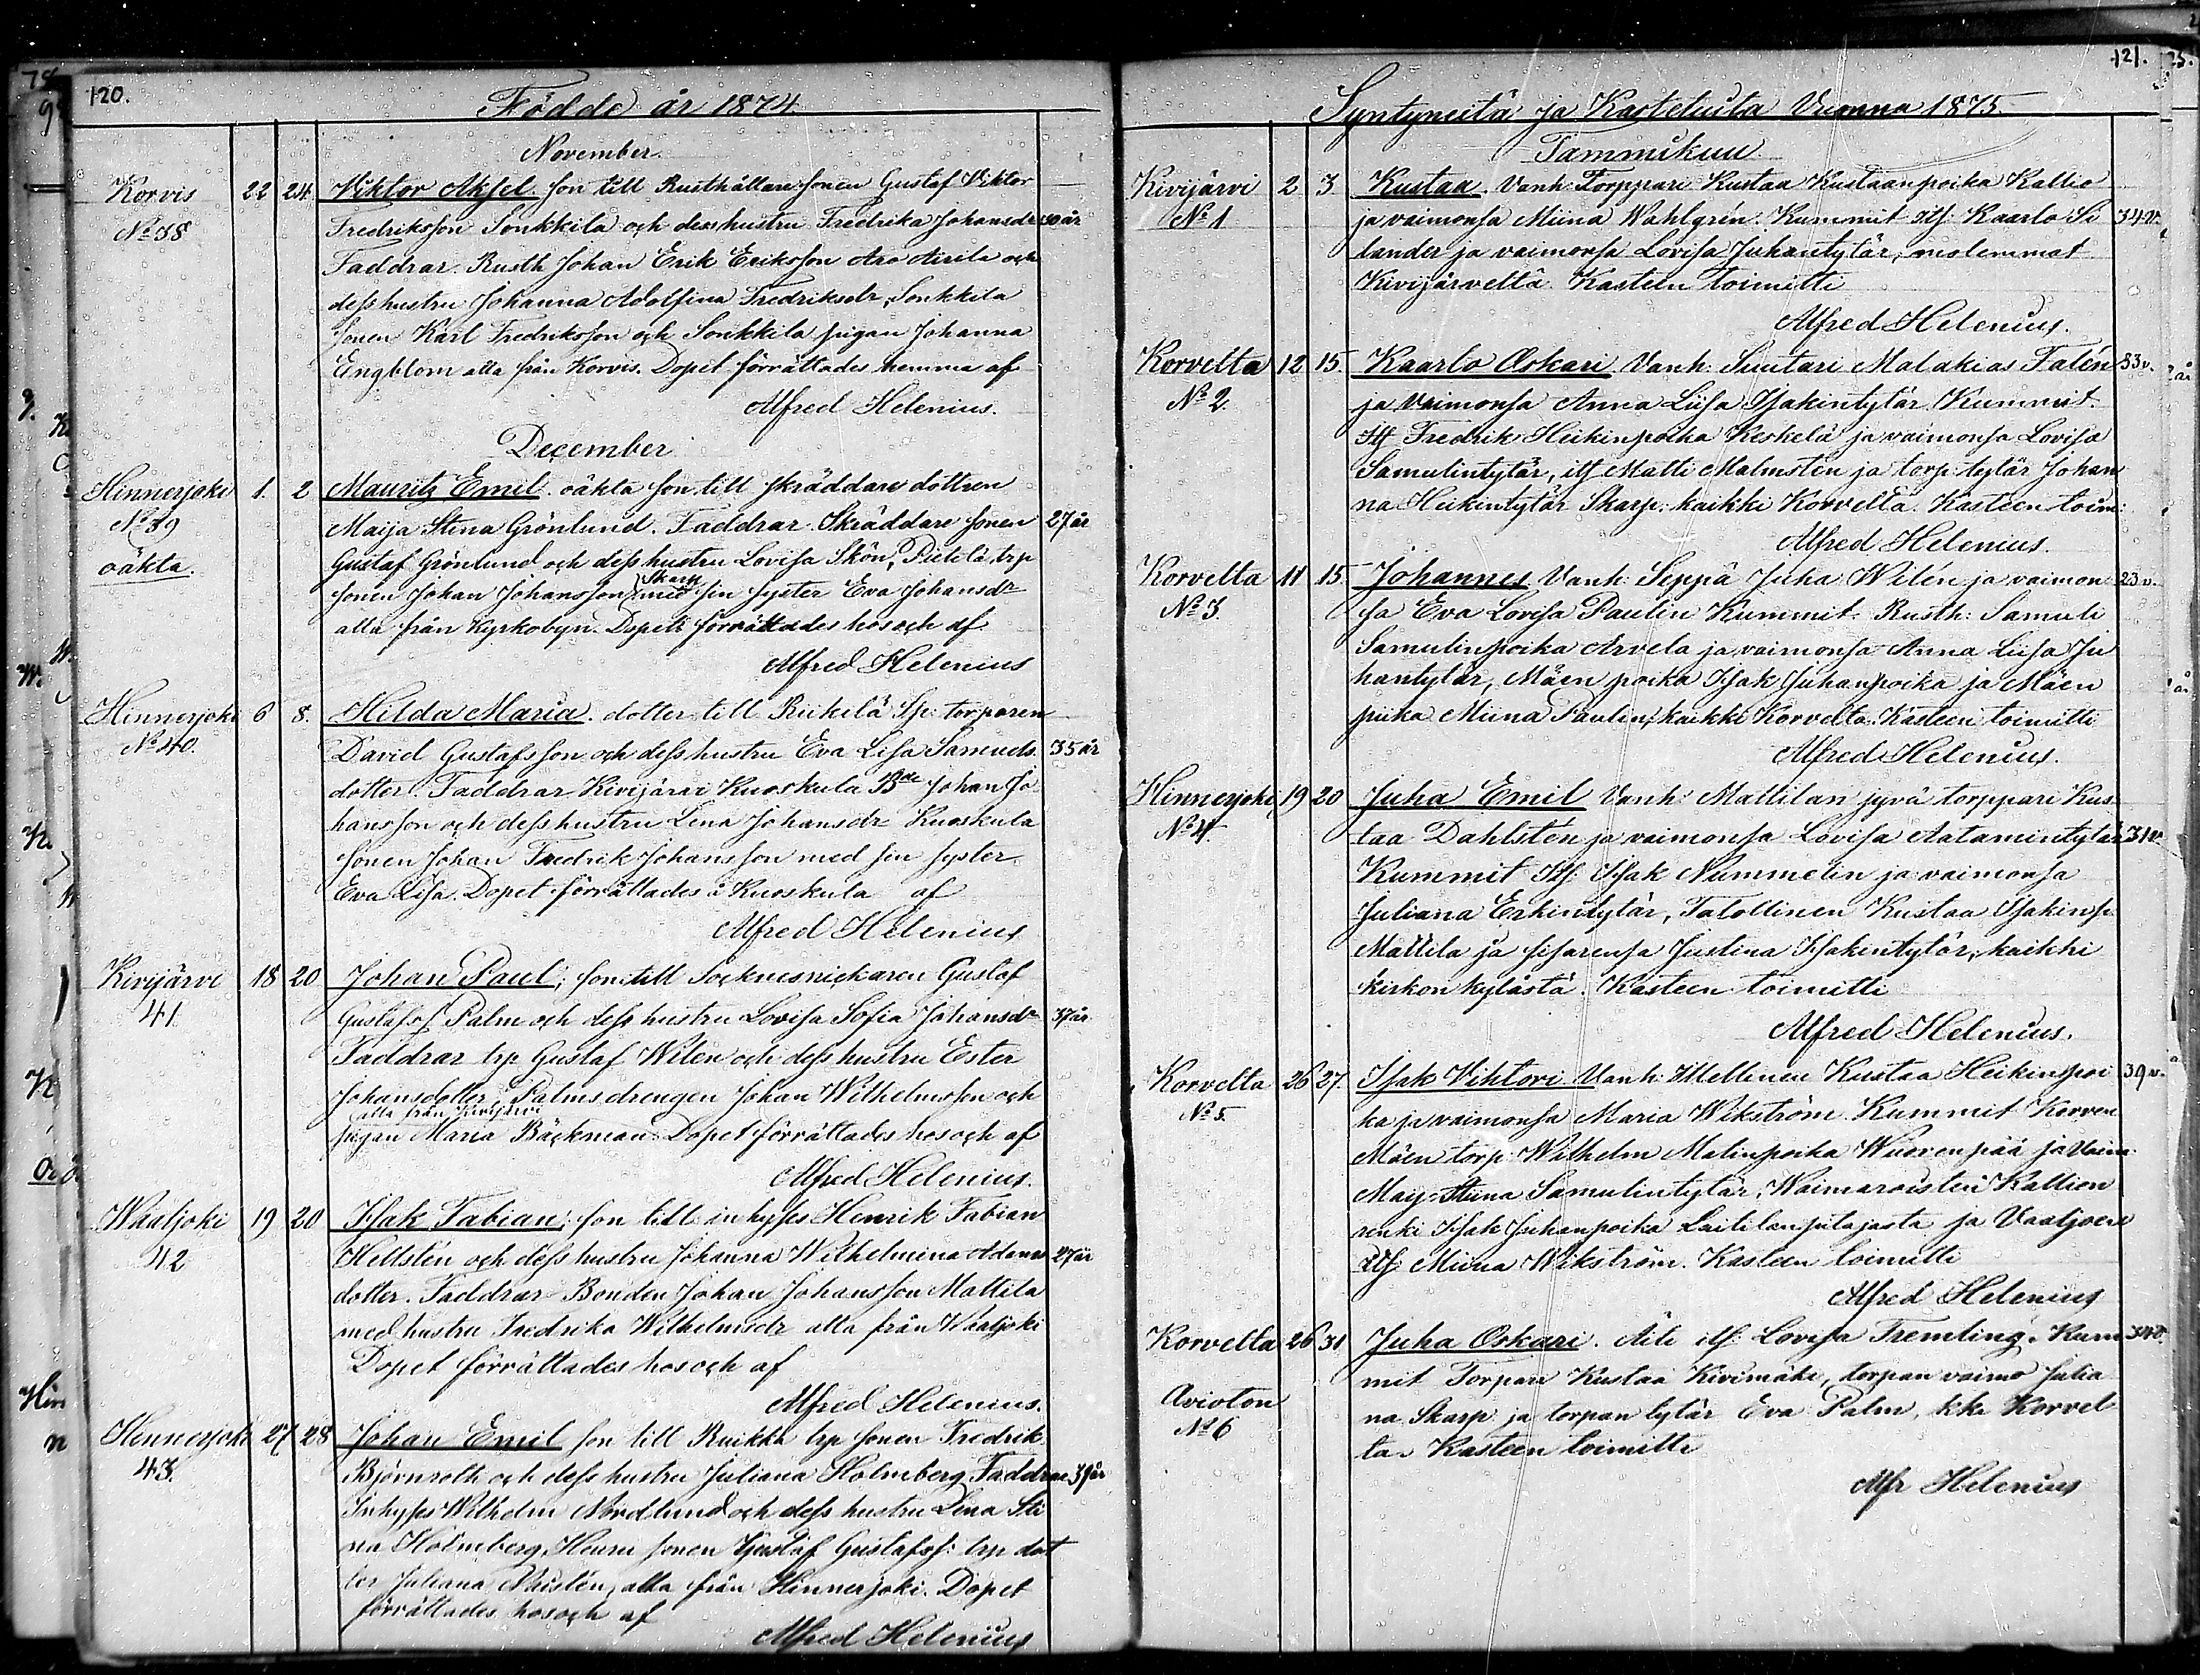 120.
Födde år 1874.
November.
Korvis 22 24 Viktor Aksel. son till Rusthållaresonen Gustaf Viktor
No 38 Fredriksson Sonkkila och dess hustru Fredrika Johansdr 30 år
Faddrar. Rusth Johan Erik Eriksson Aro Airila och
dess hustru Johanna Adolfina Fredriksdr, Sonkkila
sonen Karl Fredriksson och Sonkkila pigan Johanna
Engblom alla från Korvis. Dopet förrättades hemma af
Alfred Helenius.
December
Hinnerjoki 1. 2 Mauritz Emil. oäkta son till skräddare dottren
No 39 Maija Stina Grönlund. Faddrar. Skräddare sonen 27 år
oäkta. Gustaf Grönlund och dess hustru Lovisa Skön, Pietilä trp
sonen Johan Johansson Skarp med sin syster Eva Johansdr
alla från Kyrkobyn. Dopet förrättades hos och af
Alfred Helenius
Hinnerjoki 6 8. Hilda Maria. dotter till Riikilä torparen
No 40. David Gustafsson och dess hustru Eva Lisa Samuels 35 år
dotter. Faddrar Kivijärvi Kuoskula Bde Johan Jo
hansson och dess hustru Lena Johansdr Kuoskula
sonen Johan Fredrik Johansson med sin syster
Eva Lisa. Dopet förrättades i Kuoskula af
Alfred Helenius
Kivijärvi 18 20 Johan Paul; son till Socknesnickaren Gustaf
41. Gustafss Palm och dess hustru Lovisa Sofia Johansdr 37 år
Faddrar trp Gustaf Wilen och dess hustru Ester
Johansdotter; Palmsdrengen Johan Wilhelmsson och
alla från Kivijärvi
pigan Maria Bäckman. Dopet förrättades hos och af
Alfred Helenius.
Waaljoki 19 20 Isak Fabian; son till inhyses Henrik Fabian
42 Hellstén och dess hustru Johanna Wilhelmina Adams 27 år
dotter. Faddrar Bonden Johan Johansson Mattila
med hustru Fredrika Wilhelmsdr alla från Waaljoki
Dopet förrättades hos och af
Alfred Helenius.
Hinnerjoki 27 28 Johan Emil son till Ruikka trp sonen Fredrik
43. Björnroth och dess hustru Juliana Holmberg. Faddrar 39 år
Inhyses Wilhelm Nordlund och dess hustru Lena Sti
na Holmberg, sonen Gustaf Gustafss: trp dot
ter Juliana alla från Hinnerjoki. Dopet
förrättades hos och af
Alfred Helenius
121.
Syntyneitä ja Kastetuita Vuonna 1875.
Tammikuu
Kivijärvi 2 3 Kustaa. Vanh: Torppari Kustaa Kustaanpoika Kallio
No 1 ja vaimonsa Miina Wahlgrén. Kummit Itf: Kaarlo Si 34 v.
lander ja vaimonsa Lovisa Juhantytär, molemmat
Kivijärveltä. Kasteen toimitti
Alfred Helenius.
Korvelta 12 15. Kaarlo Oskari. Vanh: Suutari Malakias Falén 33 v.
No 2. ja Vaimonsa Anna Liisa Isakintytär. Kummit.
Itf Fredrik Heikinpoika Keskelä ja vaimonsa Lovisa
Samulintytär, itf Matti Malmstén ja torp: tytär Johan
na Heikintytär Skarp. kaikki Korvelta. Kasteen toim:
Alfred Helenius.
Korvelta 11 15 Johannes. Vanh: Seppä Juha Wilén ja vaimon 23 v.
No 3. sa Eva Lovisa Paulin Kummit. Rusth: Samuli
Samulinpoika Arvela ja vaimonsa Anna Liisa Ju
hantytär, Mäen poika Isak Juhanpoika ja Mäen
piika Miina Paulin, kaikki Korvelta. Kasteen toimitti
Alfred Helenius.
Hinnerjoki 19 20 Juha Emil Vanh: Mattilan jyvä torppari Kus
No 4. taa Dahlstén ja vaimonsa Lovisa Aatamintytär 31 v.
Kummit Itf: Isak Nummelin ja vaimonsa
Juliana Erkintytär, Talollinen Kustaa Isakinp.
Mattila ja sisarensa Justina Isakintytär, kaikki
kirkon kylästä. Kasteen toimitti
Alfred Helenius.
Korvelta 26 27. Isak Vihtori Vanh: Itsellinen Kustaa Heikinpoi 39 v.
No 5. ka ja vaimonsa Maria Wikström. Kummit Korven
Mäen torp: Wilhelm Matinpoika Wuorenpää ja vaim
Maij Stiina Samulintytär, Kallion
renki Isak Juhanpoika Laitilan pitäjästä ja Vaaljoen
itf: Miina Wikström. Kasteen toimitti
Alfred Helenius
Korvelta 26 31 Juha Oskari. Äiti itf: Lovisa Tremling. Kum 34 v.
Avioton mit Torpari Kustaa Kivimäki, torpan vaimo Julia
No 6 na Skarp ja torpan tytär Eva Palm, kki Korvel
ta. Kasteen toimitti
Alfr Helenius